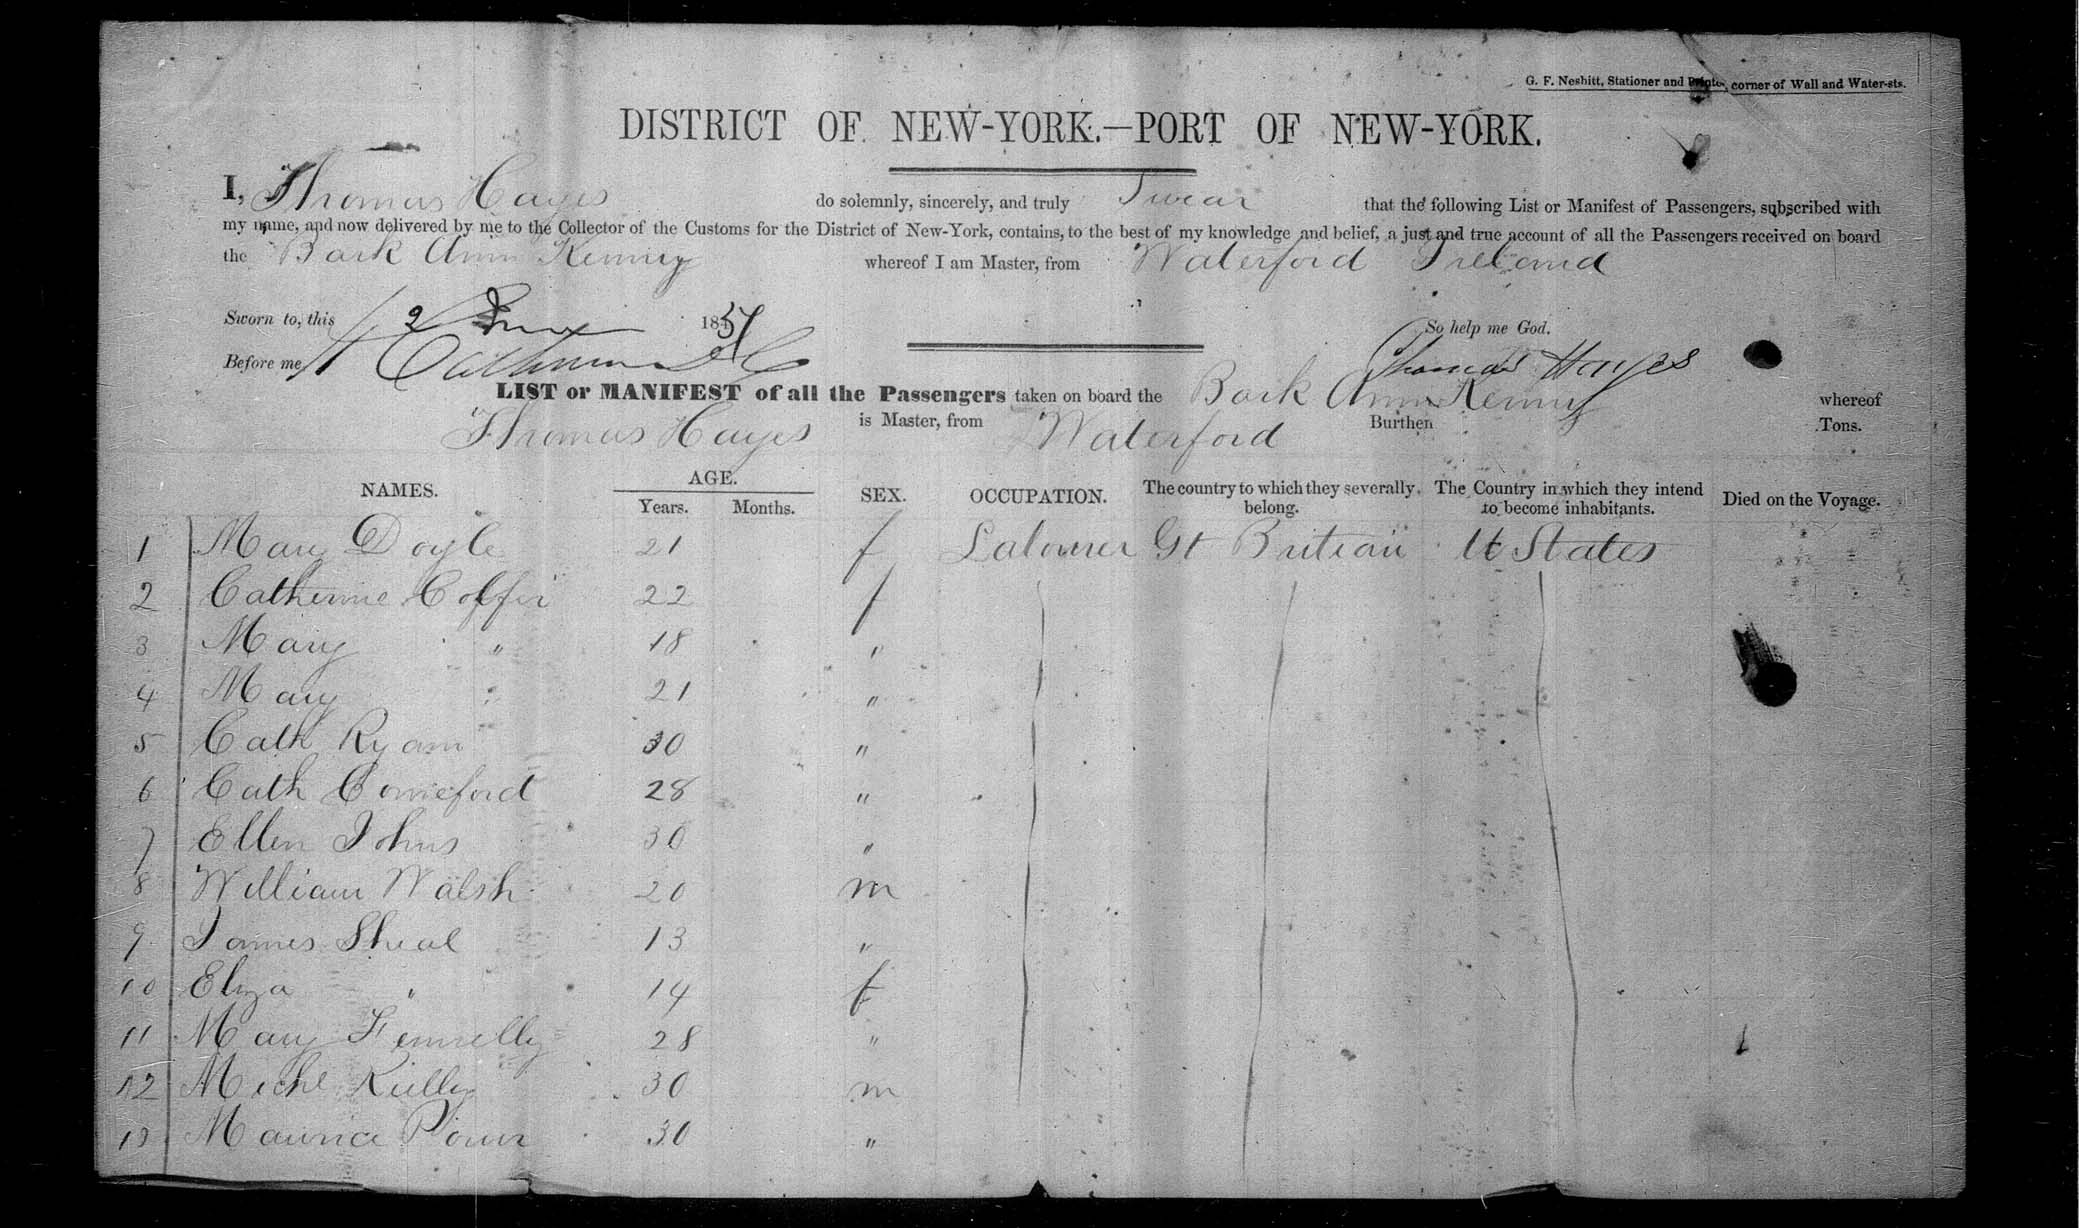 G. F. Nesbitt, Stationer and Printer, corner of Wall and Water-sts.
DISTRICT OF NEW-YORK.—PORT OF NEW-YORK.
I, Thomas Hayes do solemnly, sincerely, and truly Swear that the following List or Manifest of Passengers, subscribed with
my name, and now delivered by me to the Collector of the Customs for the District of New-York, contains, to the best of my knowledge and belief, a just and true account of all the Passengers received on board
the Bark Ann Kenny whereof I am Master, from Waterford Ireland
Sworn to, this 2 June 1851 So help me God.
Before me Thomas Hayes
LIST or MANIFEST of all the Passengers taken on board the Bark Ann Kenny whereof
Thomas Hayes is Master, from Waterford Burthen Tons.
NAMES. AGE. Years. Months. SEX. OCCUPATION. The country to which they severally belong. The Country in which they intend to become inhabitants. Died on the Voyage.
1 Mary Doyle 21 f Labourer Gt Britian U States
2 Catherine 22 f
3 Mary " 18 "
4 Mary " 21 "
5 Cath Ryan 30 "
6 Cath Comeford 28 "
7 Ellen Johns 30 "
8 William Walsh 20 m
9 James Sheal 13 "
10 Eliza " 14 f
11 Mary Fennelly 28 "
12 Michl Kielly 30 m
13 Maurice Power 30 "